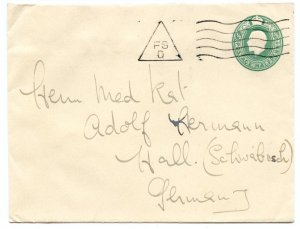 FS
D
Herrn Med Rat
Adolf Hermann
Hall. (Schwäbisch)
Germany